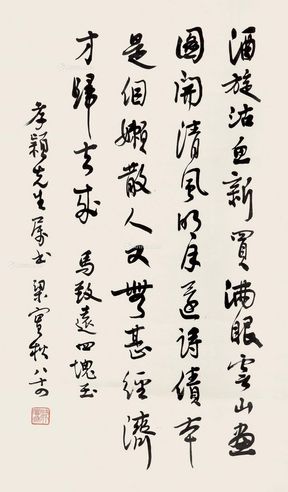 酒旋沽魚新買滿眼雲山畫
圖開清風明月還詩債本
是個嬾散人又無甚經濟
才歸去來 馬致遠四塊玉
孝穎先生屬書 梁實秋 八十四